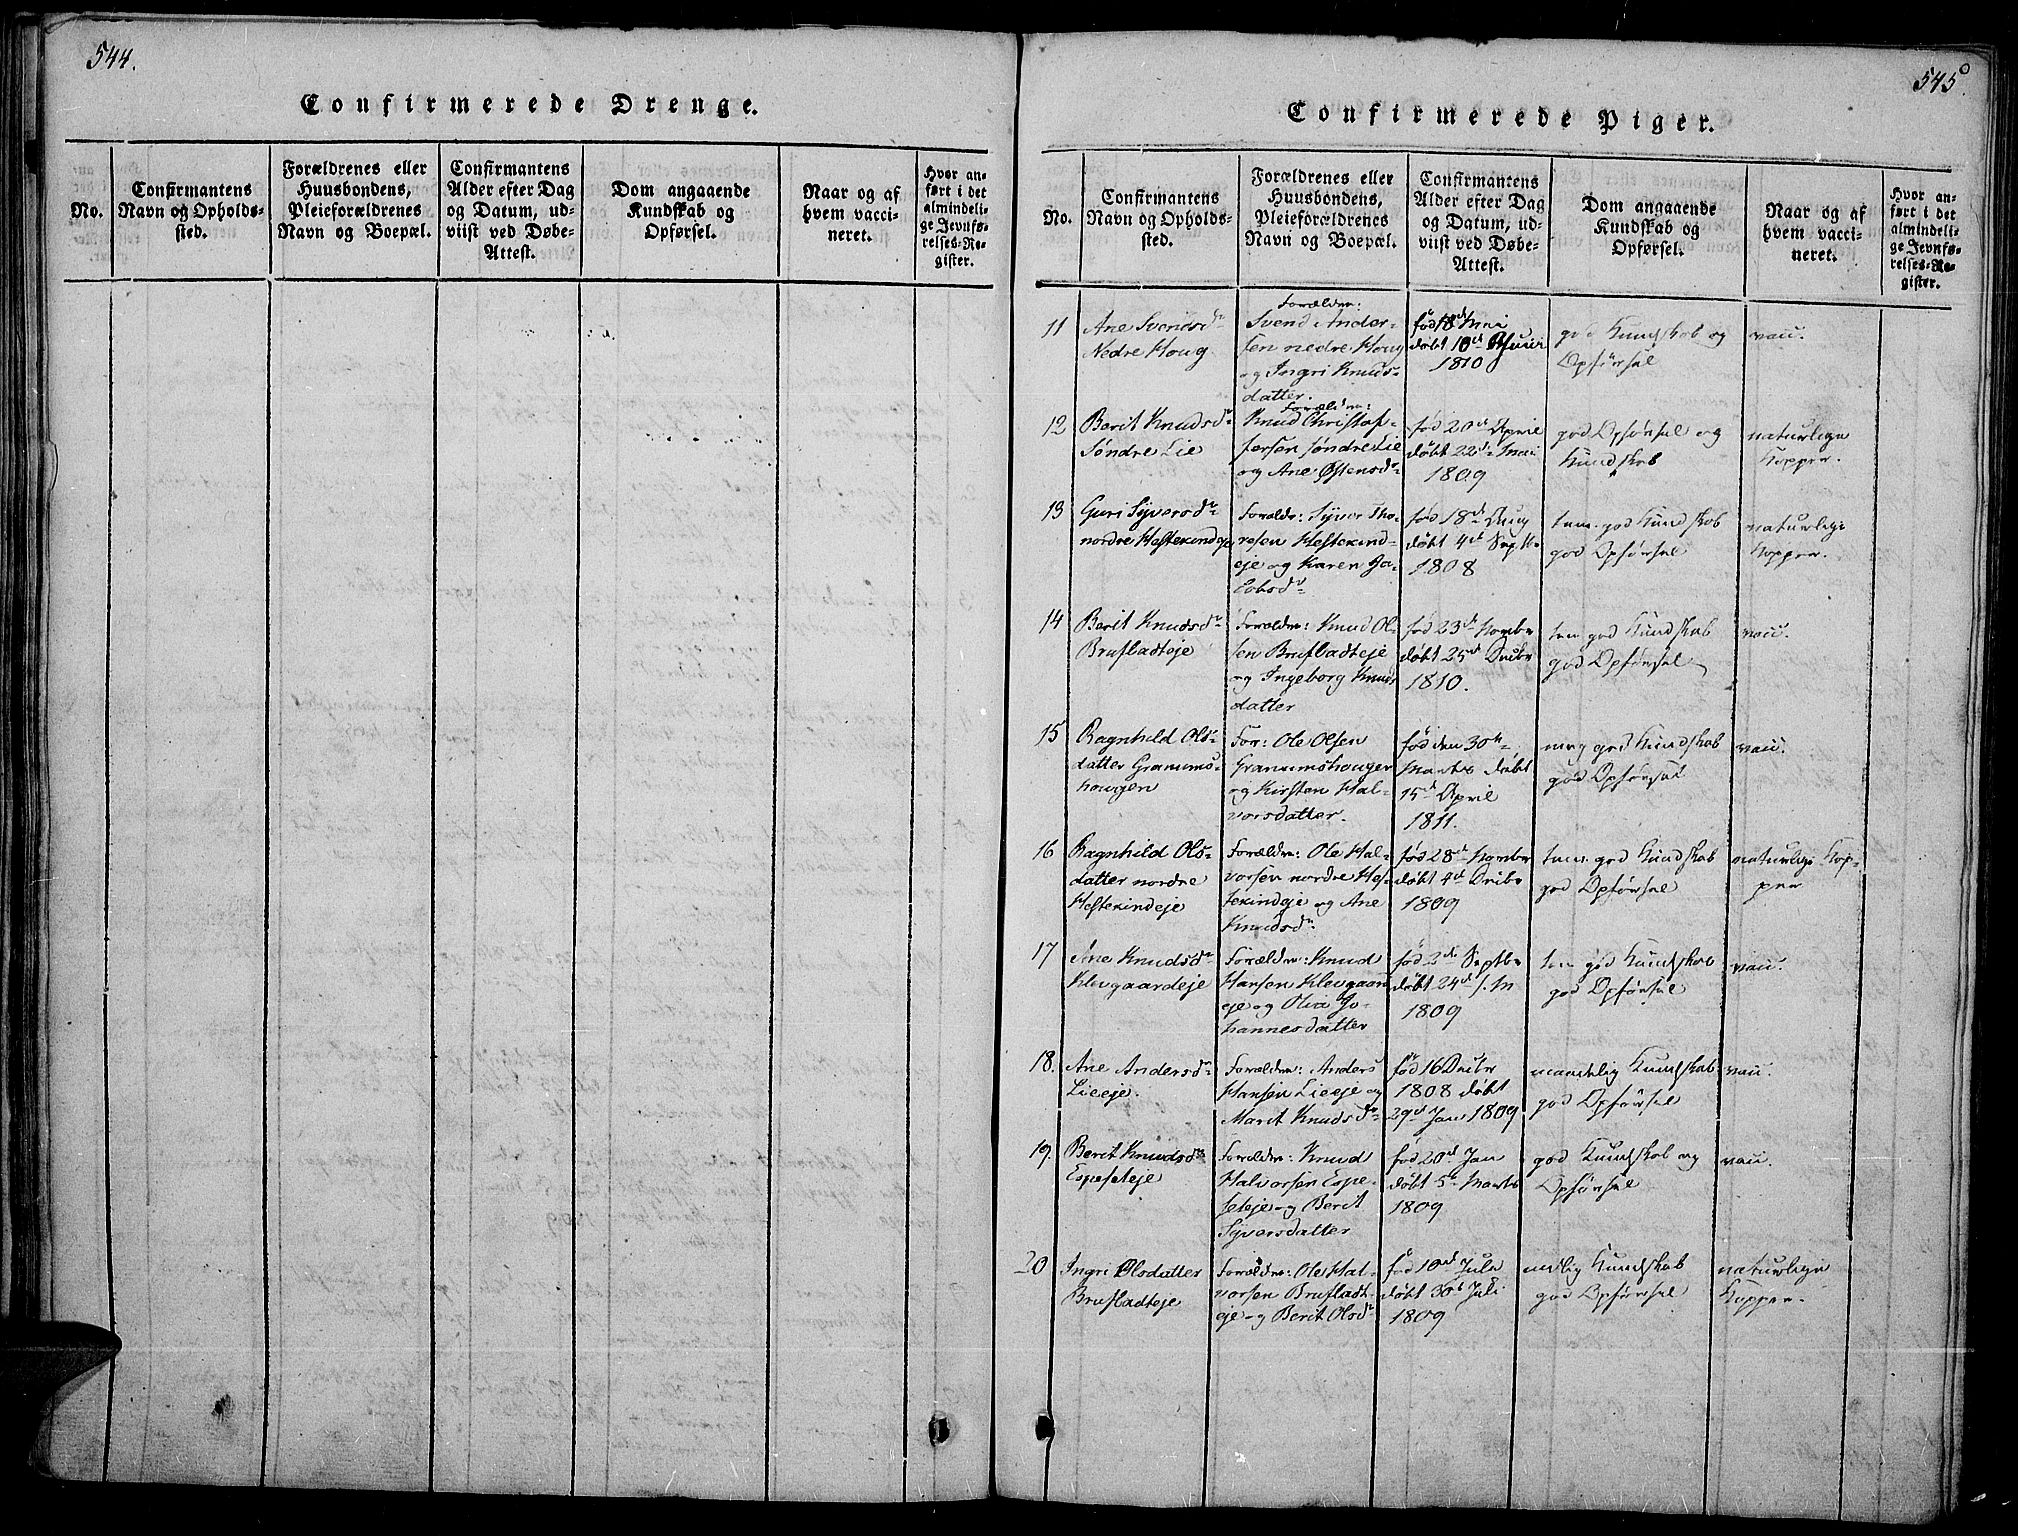 544.
Confirmerede Drenge.
No.
Confirmantens
Navn og Opholds-
sted.
Forældrenes eller
Huusbondens,
Pleieforældrenes
Navn og Boepæl.
Confirmantens
Alder efter Dag
og Datum, ud-
viist ved Døbe-
Attest.
Dom angaaende
Kundskab og
Opførsel.
Naar og af
hvem vacci-
neret.
Hvor an-
ført i det
almindeli-
ge Jevnfø-
relses-Re-
gister.
545.
Confirmerede Piger.
No.
Confirmantens
Navn og Opholds-
sted.
Forældrenes eller
Huusbondens,
Pleieforældrenes
Navn og Boepæl.
Confirmantens
Alder efter Dag
og Datum, ud-
viist ved Døbe-
Attest.
Dom angaaende
Kundskab og
Opførsel.
Naar og af
hvem vacci-
neret.
Hvor an-
ført i det
almindeli-
ge Jevnfø-
relses-Re-
gister.
11
Ane Svendsdr
Nedre Houg
Forældre:
Svend Ander-
sen nedre Houg
og Ingri Knuds-
datter.
fød 18de Mai
døbt 10de Juni
1810
god Kundskab og
Opførsel
vacc.
12
Berit Knudsdr
Søndre Lie
Forældre:
Knud Christof-
fersen søndre Lie
og Ane Østensdr
fød 20de April
døbt 22de Mai
1809
god Opførsel og
Kundskab
naturlige
Kopper.
13
Guri Syversdr
nordre Hestekindeje
Forældr: Syver Tho-
resen Hestekind-
eje og Karen Ja-
cobsdr
fød 18de Aug
døbt 4de Septbr
1808
tem. god Kundskab
god Opførsel
naturlige
Kopper.
14
Berit Knudsdr
Brufladteje
Forældre: Knud Ol-
sen Brufladteje
og Ingeborg Knuds
datter
fød 23de Novmbr
døbt 25de Decbr
1810.
tem god Kundskab
god Opførsel
vacc.
15
Ragnhild Ols-
datter Granums-
hougen
For: Ole Olsen
Granumshougen
og Kirsten Hal-
vorsdatter.
fød den 30te
Marts døbt
15de April
1811.
meg god Kundskab
god Opførsel
vacc.
16
Ragnhild Ols-
datter nordre
Hestekindeje
Forældre: Ole Hal-
vorsen nordre Hes-
tekindeje og Ane
Knudsdr
fød 28de Novmbr
døbt 4de Decbr
1809
tem. god Kundskab
god Opførsel
naturlige Kop-
per
17
Ane Knudsdr
Klevgaardeje
Forældre: Knud
Hansen Klevgaard
eje og Olia Jo-
hannesdatter
fød 2de Septbr
døbt 24de s. M
1809
tem god Kundskab
god Opførsel
vacc.
18.
Ane Andersdr
Lieeje.
Forældre: Anders
Hansen Lieeje og
Marit Knudsdr
fød 16 Decbr
1808 døbt
29de Jan 1809
maadelig Kundskab
god Opførsel
vacc.
19
Berit Knudsdr
Espeseteje
Forældre: Knud
Halvorsen Espe-
seteje og Berit
Syversdatter
fød 20de Jan
døbt 5te Marts
1809
god Kundskab og
Opførsel
vacc.
20
Ingri Olsdatter
Brufladteje
Forældre: Ole Hal-
vorsen Brufladt-
eje og Berit Olsdr
fød 10de Juli
døbt 30te Juli
1809
mdlig Kundskab
god Opførsel
naturlige
Kopper.